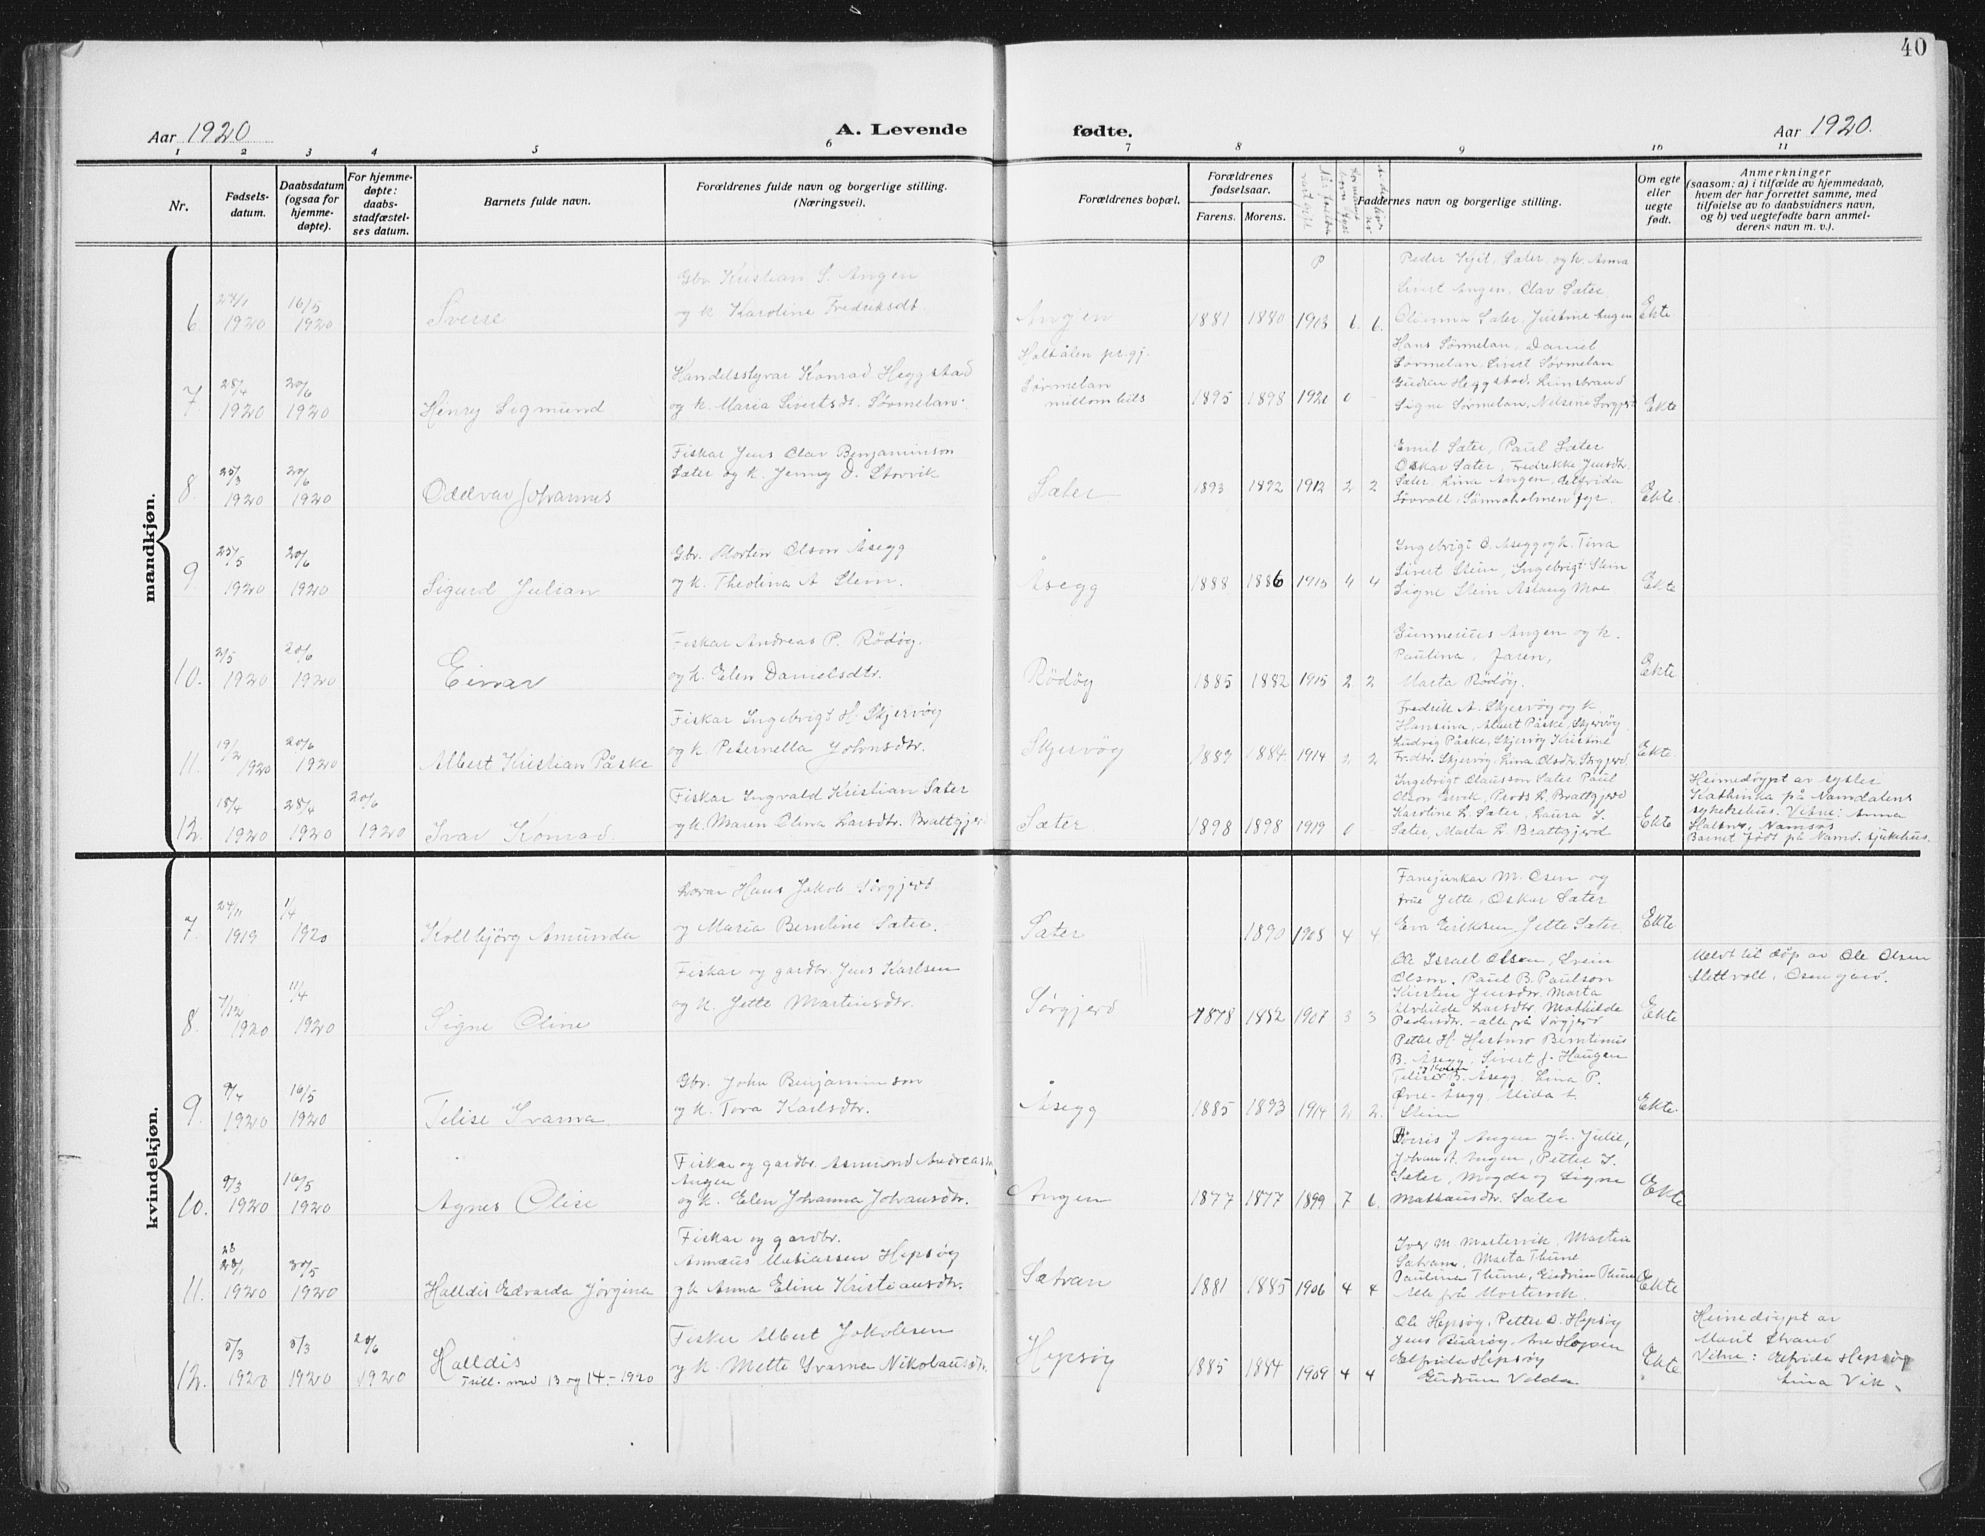 40
Aar 1920
A. Levende
fødte.
Aar 1920.
1 2 3 4 5 6 7 8 9 10 11
Nr.
Fødsels-
datum.
Daabsdatum
(ogsaa for
hjemme-
døpte).
For hjemme-
døpte:
daabs-
stadfæstel-
ses datum.
Barnets fulde navn.
Forældrenes fulde navn og borgerlige stilling.
(Næringsvei).
Forældrenes bopæl.
Forældrenes
fødselsaar.
Farens. Morens.
Faddernes navn og borgerlige stilling.
Om egte
eller
uegte
født.
Anmerkninger
(saasom: a) i tilfælde av hjemmedaab,
hvem der har forrettet samme, med
tilføielse av to daabsvidners navn,
og b) ved uegtefødte barn anmel-
derens navn m. v.).
mandkjøn.
6. 1920 16/5 1920 Sverre
Gbr. Kristian S. Angen
og k. Karoline Fredriksdt.
Angen 1881 1880 1903 6. 6.
Peder Sæter, og k. Anna
Sivert Angen, Olav Sæter
Sæter, Justine Angen
Ekte
7. 28/4 1920 20/6 1920 Henry Sigmund
Handelsstyrar Konrad Heggstad
og k. Maria Sivertsdt. Sørmelan.
Holtålen pr.gj.
Sørmelan
millombils 1895 1898 1920 0 -
Hans Sørmelan, Daniel
Sørmelan, Sivert Sørmelan
Gudrun Heggstad,
Signe Sørmelan, Nelsine Sørgjerd
Ekte
8. 25/3 1920 20/6 1920 Oddvar Johannes
Fiskar Jens Olav Benjaminson
Sæter og k. Jenny D. Storvik
Sæter 1893 1892 1912 2 2
Emil Sæter, Paul Sæter
Oskar Sæter, Fredrikke Jensdtr.
Sæter Lina Angen,
Sørvoll, fyr.
Ekte.
9. 25/5 1920 20/6 1920 Sigurd Julian
Gbr. Morten Olson Åsegg
og k. Theolina A Stein.
Åsegg 1888 1886 1915 4 4
Ingebrigt O. Åsegg og k. Tina
Sivert Stein, Ingebrigt Stein
Signe Stein Aslaug Moe
Ekte
10. 2/5 1920 20/6 1920 Einar
Fiskar Andreas P. Rödöy.
og k. Elen Danielsdtr.
Rödöy 1885 1882 1915 2 2
Gunnerius Angen og k.
Paulina, Jaren,
Marta Rödöy.
Ekte
11. 19/2 1920 20/6 1920 Albert Kristian Påske
Fiskar Ingebrigt H. Skjervöy
og k. Peternella Johnsdtr.
Skjervöy 1889 1884 1914 2 2
Fredrik A. Skjervöy og k.
Hansina, Albert Påske, Skjervöy
Ludvig Påske, Skjervöy Kristine
Fredtr. Skjervöy, Lina Olsdtr. Sørgjerd
Ekte
12. 18/4 1920 28/4 1920 20/6 1920 Ivar Konrad.
Fiskar Ingvald Kristian Sæter
og k. Maren Olina Larsdtr. Brattgjerd
Sæter 1898 1898 1919 0
Ingebrigt Claussson Sæter Paul
Olson L. Brattgjerd
Karoline L. Sæter, Laura I.
Sæter, Marta L. Brattgjerd
Ekte
Heimedöypt av syster
Kathinka på Namdalens
sykehus. Vitne: Anna
Namsos
Barnet født på Namd. sjukhus.
kvindekjøn.
7. 24/11 1919 1/4 1920 Kollbjörg Amunda
Lærar Hans Jakob Sörgjerd
og Maria Berntine Sæter.
Sæter 1890 1908 4 4
Fanejunkar M. Osen og
frue Jette, Oskar Sæter
Eva Eriksen Jette Sæter
Ekte
8. 7/12 1920 11/4 1920 Signe Oline
Fiskar og gardbr. Jens Karlsen
og k. Jette Martinsdtr.
Sørgjerd 1878 1882 1907 3 3
Ole Israel Olson, Svein
Olson. Paul B. Paulson
Kirsten Jensdtr. Marta
Larsdtr. Mathilde
Pedersdtr. – alle på Sørgjerd
Ekte
Meldt til dåp av Ole Olsen
Slettvoll, Osen gard.
9. 9/4 1920 16/5 1920 Telise Ivarna
Gbr. John Benjaminson
og k. Tora Karlsdtr.
Åsegg 1885 1893 1914 2 2.
Petter H. Berntinus
B. Åsegg, Sivert J. Haugen
Telise B. Åsegg. Lina P.
Øvre-Åsegg, Alida A
Stein
Ekte.
10. 9/3 1920 16/5 1920 Agnes Olise
Fiskar og gardbr. Asmund Andreassn
Angen
og k. Elen Johanna Johansdtr.
Angen 1877 1877 1899 7 6.
J. Angen og k. Julie,
Johan A. Angen, Petter I.
Sæter, Magda og Signe
Mathausdtr. Sæter
Ekte
11. 28 1920 30/5 1920 Halldis Edvarda Jörgina
Fiskar og gardbr.
Annæus Matiassen Hepsöy
og k Anna Eline Kristiansdtr.
Sætran 1881 1885 1906 4 4
Iver M Mortervik, Martin
Sætran, Marta Thune
Paulina Thune, Gudrun Thune
Alle på Mortervik.
Ekte
12. 5/3 1920 5/3 1920 20/6 1920 Halldis
Trill. med 13 og 14 – 1920
Fisker Albert Jakobsen
og k. Mette Ivarna Nikolausdtr.
Hepsöy 1885 1884 1909 4 4
Ole Hepsöy, Petter O. Hepsöy
Jens Buaröy, Ane Hopen
Elfrida Hepsöy
Gudrun Velde
Ekte
Heimedöypt av
Marit Strand
Vitne: Elfrida Hepsöy
Lina Vik.